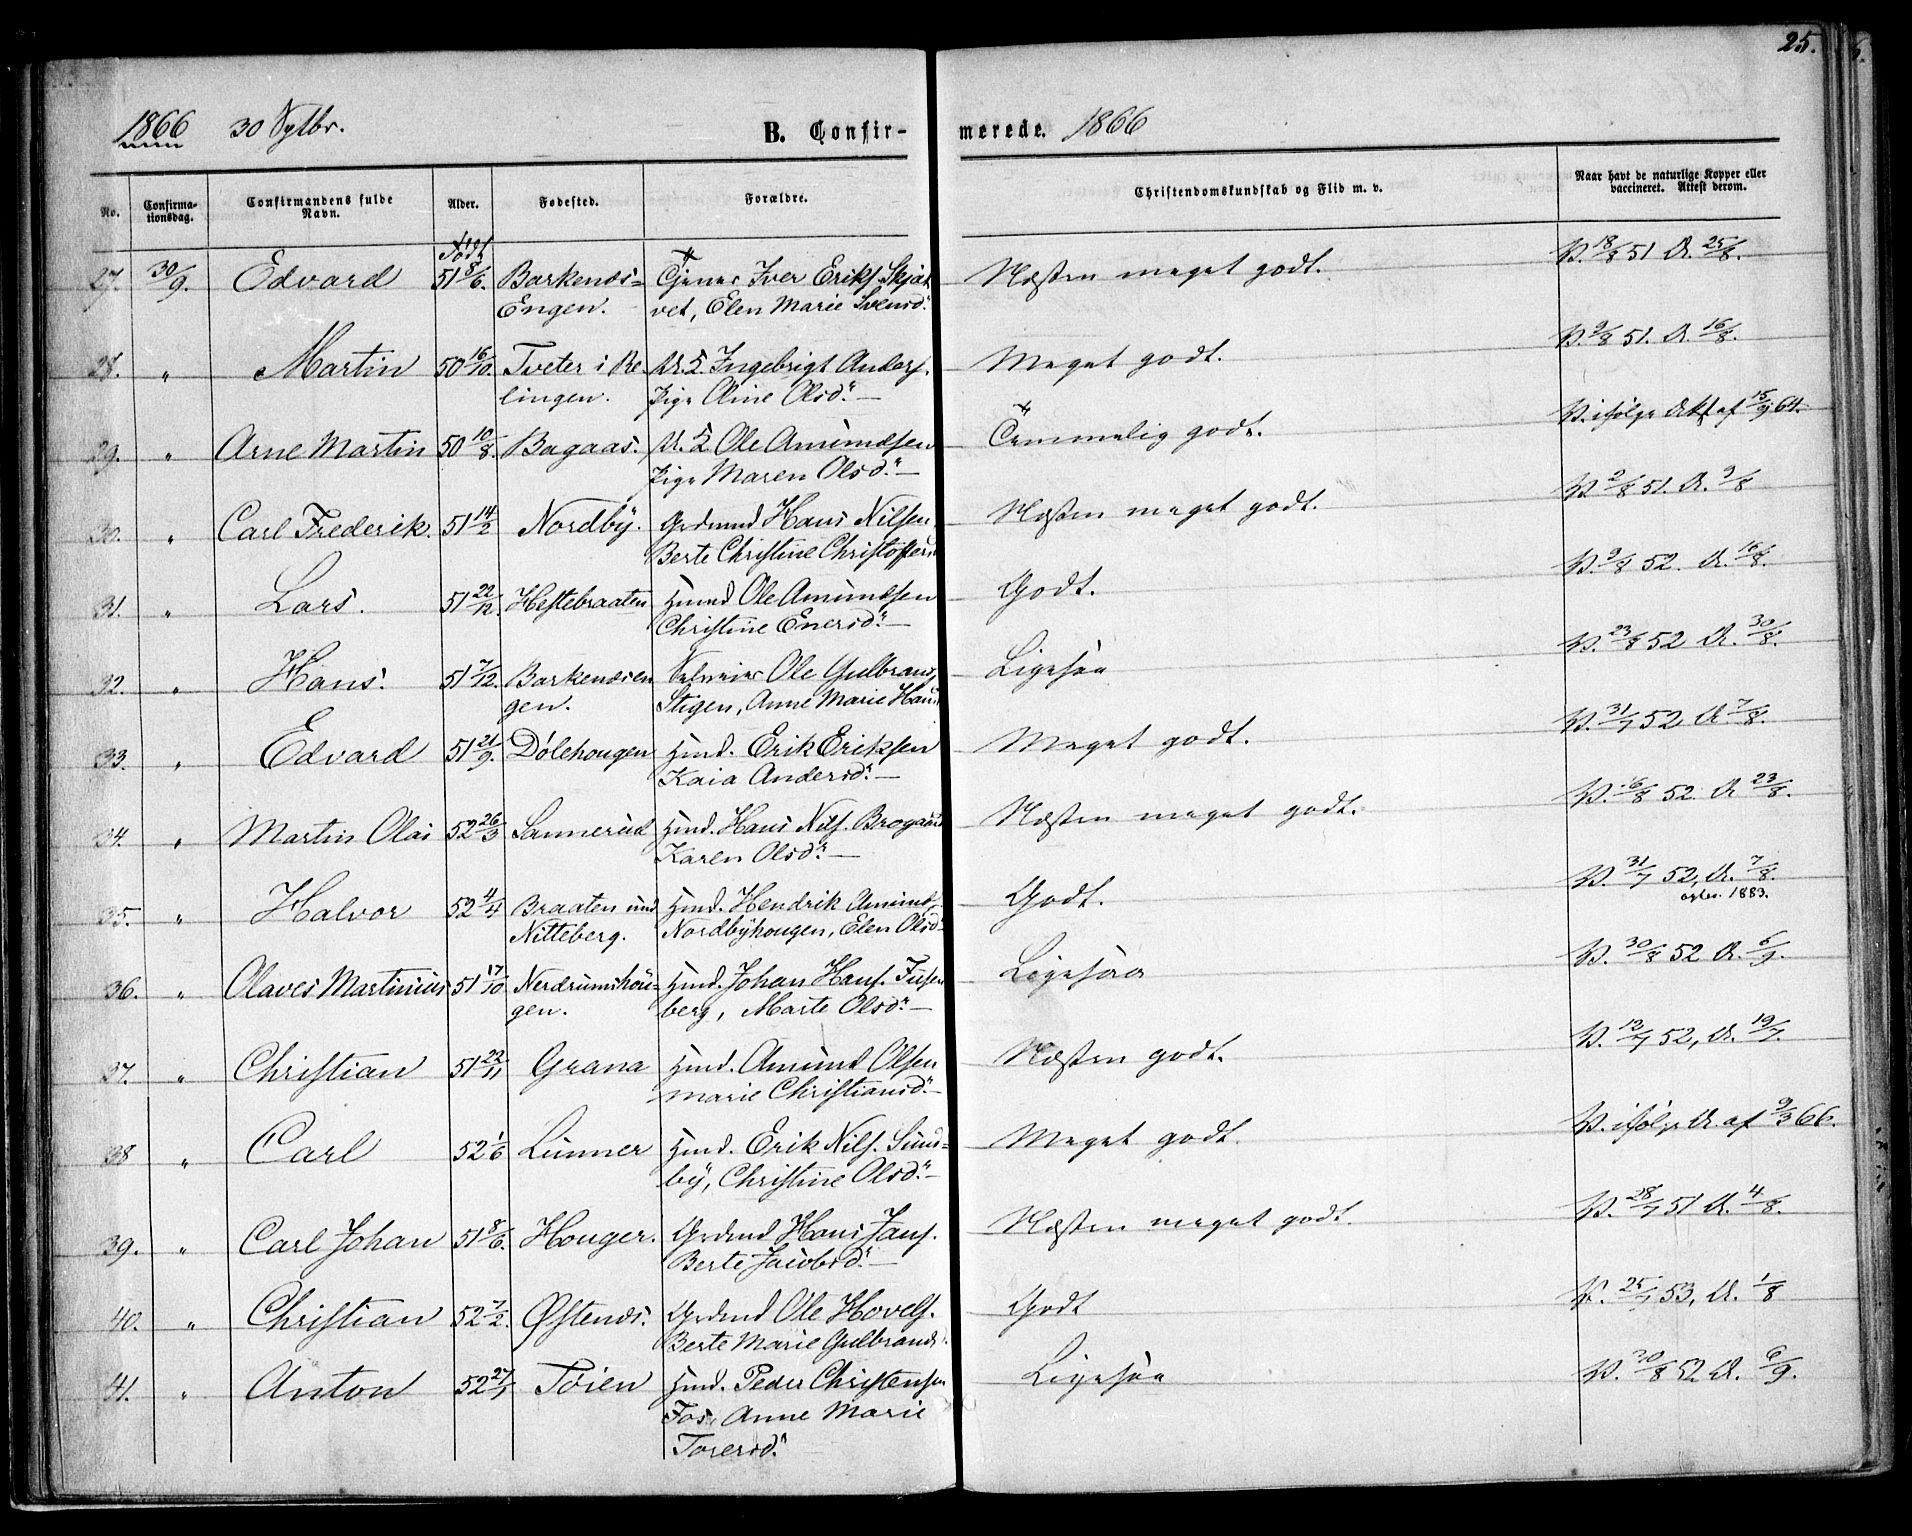 25.
1866 30 Septbr. B. Confir- merede. 1866
No. Confirma-tionsdag. Confirmandens fulde Navn. Alder. Fødested. Forældre. Christendomskundskab og Flid m. v. Naar havt de naturlige Kopper eller vaccineret. Attest derom.
Født
27. 30/9. Edvard 51 8/6. Barkenæs= Tjener Iver Eriks. Skjæt Næsten meget godt. V. 18/8 51 A. 25/8.
Engen. vet, Elen Marie Svensd.
28. " Martin 50 16/10. Tveter i Re U. S. Ingebrigt Anders. Meget godt. V. 9/8 51. A. 16/8.
lingen. Pige Oline Olsd.
29. " Arne Martin 50 10/8. Bagaas. U. S. Ole Amundsen Temmelig godt. V. ifølge Akt af 15/9 64.
Pige Maren Olsd.
30. " Carl Frederik. 51 14/2 Nordby. Grdmnd Hans Nilsen Næsten meget godt. V. 2/8 51. A. 9/8
Berte Christine Christoffersd
31. " Lars. 51 22/12. Hestebraaten Husmd Ole Amundsen Godt. V. 9/8 52. A. 16/8.
Christine Enersd.
32. " Hans. 51 7/12. Barkenæsen Ole Gulbrans. Ligesaa V. 23/8 52 A. 30/8.
gen. Stigen, Anne Marie Hans
33. " Edvard 51 21/9. Dølehougen Husd. Erik Eriksen Meget godt. V. 31/7 52, A 7/8.
Kaia Andersd.
34. " Martin Olai 52 26/3 Sannerud Husd. Hans Nils. Brogaard Næsten meget godt. V. 16/8 52. A 23/8.
Karen Olsd.
35. " Halvor 52 4/4 Braaten und Husd. Hendrik Amunds. Godt. V. 31/7 52, A. 7/8.
Nitteberg. Nordbyhougen, Elen Olsd. 1883.
36. " Olaves Martinius 51 17/10 Nerdrumshou= Husd. Johan Hans. Ligesaa V. 30/8 52 A. 6/9.
gen. berg, Marte Olsd.
37. " Christian 51 22/11 Grana Husd. Amund Olsen Næsten godt. V. 12/7 52, A. 19/7.
Marie Christiansd.
38 " Carl 52 1/6 Lunner Husd. Erik Nils. Sund= Meget godt. V. ifølge A. af 9/3 66.
by, Christine Olsd.
39. " Carl Johan 51 8/6. Houger. Grdmd Hans Jans. Næsten meget godt. V. 28/7 51 A. 4/8.
Berte Jacobsd.
40. " Christian 52 7/2. Østenæs. Grdmd Ole Hovels. Godt V. 25/7 53, A. 1/8
Berte Marie Gulbrands.
41. " Anton 52 27/1 Tøien Husd. Peder Christensen Ligesaa V. 30/8 52 A. 6/9.
Fos, Anne Marie
Toresd.